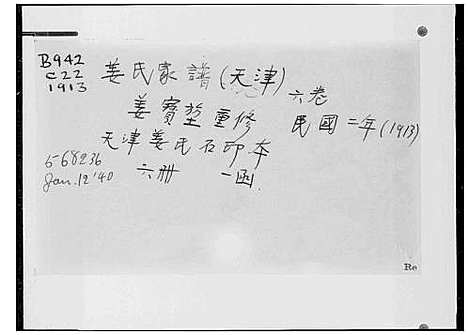 B942
C22
1913
姜氏家譜(天津)
六卷
姜賽堃重修
民國二年(1913)
天津姜氏石印本
568236
Jan.12'40
六冊 一函.
Re